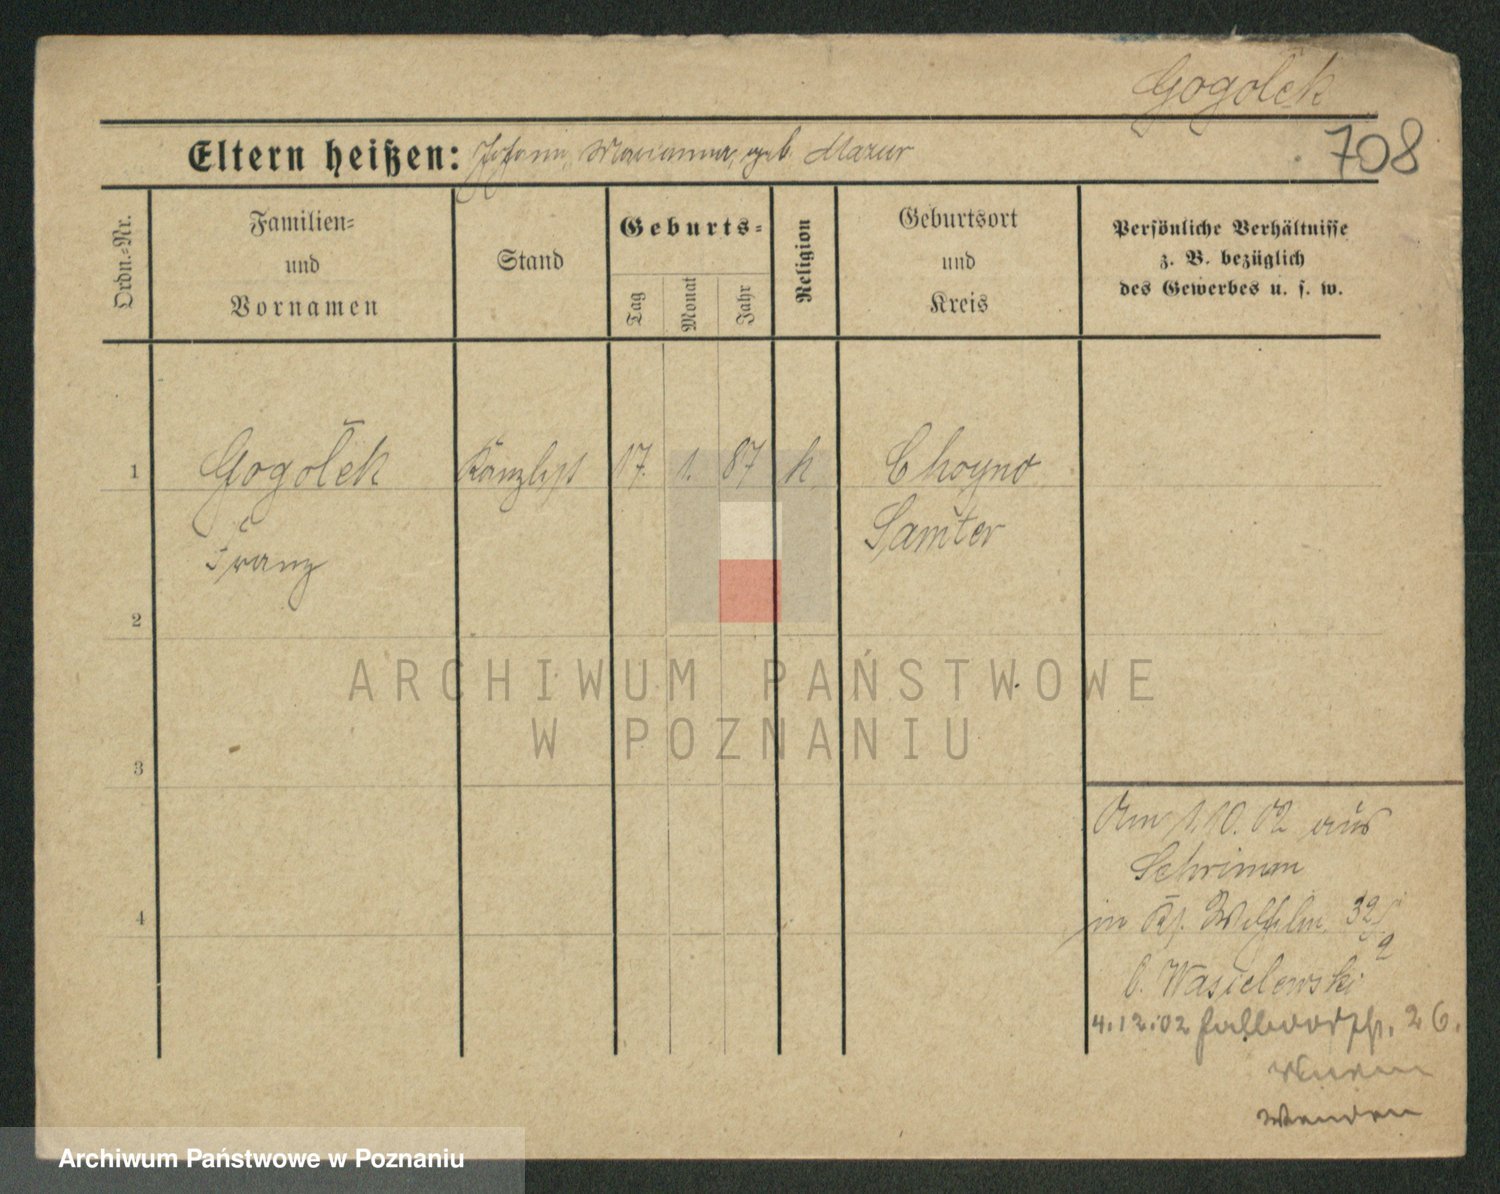 Gogolek
Eltern heißen: Johann, Marianna, geb. Mazur
708
Ordn.-Nr.
Familien-
und
Vornamen
Stand
Geburts-
Tag
Monat
Jahr
Religion
Geburtsort
und
Kreis
Persönliche Verhältnisse
z. B. bezüglich
des Gewerbes u. s. w.
1 Gogolek Kanzlist 17. 1. 87 k. Choyno
Franz Samter
2
3
4
ARCHIWUM PAŃSTWOWE
W POZNANIU
Am 1.10.02 aus
Schrimm
in
b. Wasielewski
4.12.02 26.
Wenden
Wenden
Archiwum Państwowe w Poznaniu